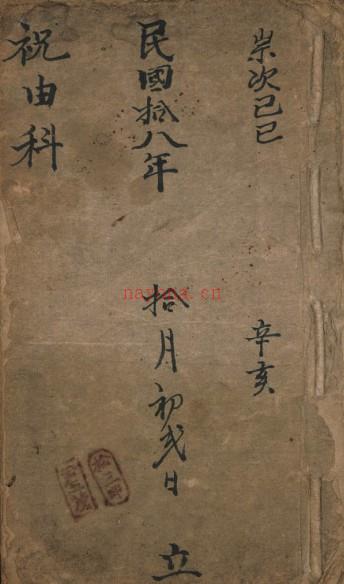 崇次己巳 辛亥
民國拾八年 拾月初弍日 立
祝由科
nayona.cn